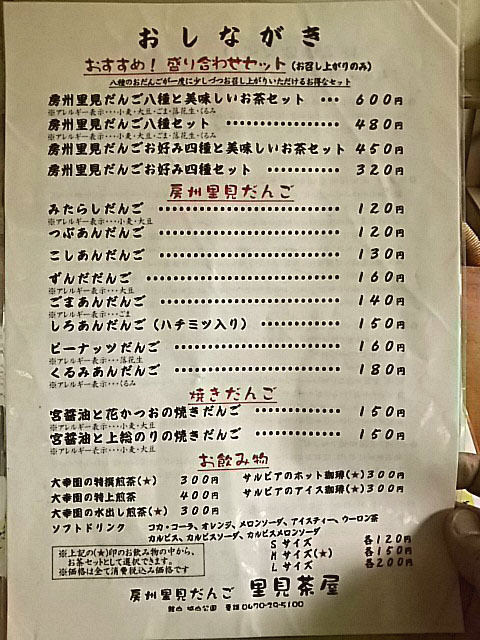 おしながき
おすすめ！盛り合わせセット（お召し上がりのみ）
八種のおだんごが一度に少しづつお召し上がりいただけるお得なセット
房州里見だんご八種と美味しいお茶セット ･･･ 600円
※アレルギー表示･･･小麦･大豆･ごま･落花生･くるみ
房州里見だんご八種セット ･･････････････････ 480円
※アレルギー表示･･･小麦･大豆･ごま･落花生･くるみ
房州里見だんごお好み四種と美味しいお茶セット 450円
房州里見だんごお好み四種セット ････････････ 320円
房州里見だんご
みたらしだんご ････････････････････････ 120円
※アレルギー表示･･･小麦･大豆
つぶあんだんご ････････････････････････ 120円
こしあんだんご ････････････････････････ 130円
ずんだだんご ････････････････････････ 160円
※アレルギー表示･･･大豆
ごまあんだんご ････････････････････････ 140円
※アレルギー表示･･･ごま
しろあんだんご（ハチミツ入り） ･･････････････ 150円
ピーナッツだんご ････････････････････････ 160円
※アレルギー表示･･･落花生
くるみあんだんご ････････････････････････ 180円
※アレルギー表示･･･くるみ
焼きだんご
宮醤油と花かつおの焼きだんご ･･････････････ 150円
※アレルギー表示･･･小麦･大豆
宮醤油と上総のりの焼きだんご ･･････････････ 150円
※アレルギー表示･･･小麦･大豆
お飲み物
大幸園の特撰煎茶（★） 300円
サルビアのホット珈琲（★）300円
大幸園の特上煎茶 400円
サルビアのアイス珈琲（★）300円
大幸園の水出し煎茶（★） 300円
ソフトドリンク コカ･コーラ、オレンジ、メロンソーダ、アイスティー、ウーロン茶
カルピス、カルピスソーダ、カルピスメロンソーダ
Sサイズ 各120円
Mサイズ（★） 各150円
Lサイズ 各200円
※上記の（★）印のお飲み物の中から、
お茶セットとして選択できます。
※価格は全て消費税込み価格です
房州里見だんご 里見茶屋
館山 城山公園 電話 0470-29-5100